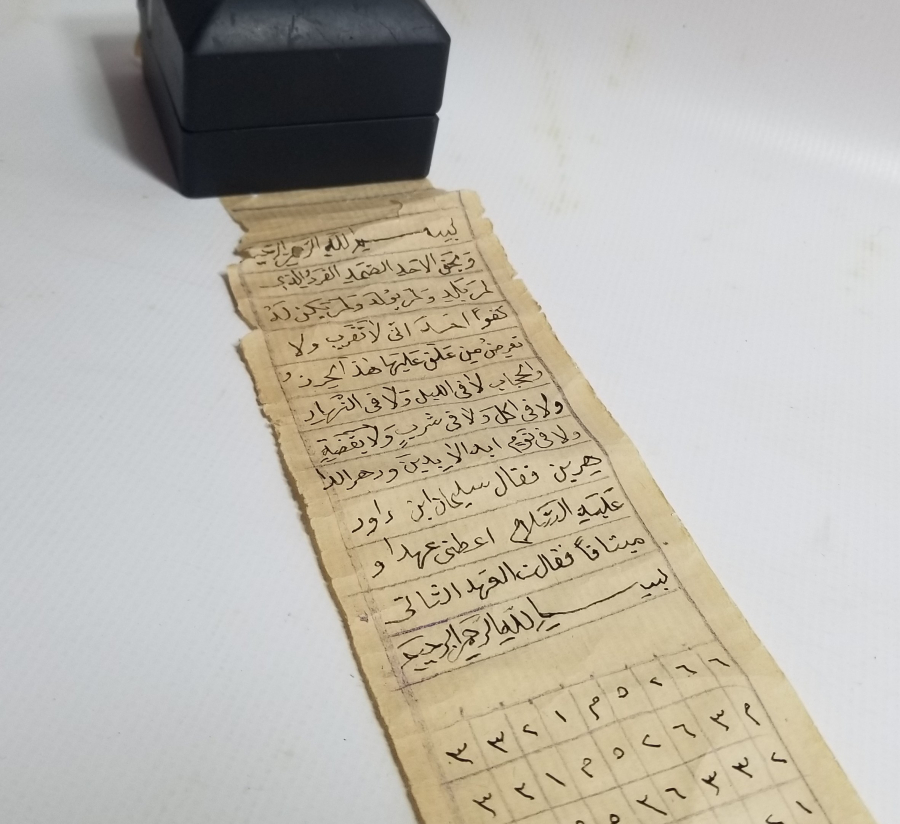 بسم الله الرحمن الرحيم
وبحق الاحد الصمد الفرد الذي
لم يالد ولم يولد ولم يكن له
كفوا احد اني لا تقرب ولا
تعرض من علق عليها هذا الحرز و
والحجاب لا في الليل ولا في النهار
ولا في اكل ولا في شرب ولا يقضة
ولا في نوم ابد الابدين ودهر الدا
هرين فقال سليمان ابن داود
عليه السلام اعطني عهدا و
ميثاقا فقالت العهد الثاني
بسم الله الرحمن الرحيم
٣ ٣ ٢ ١ م ٥ ٢ ٦ ٦
٣ ٢ ١ م ٥ ٢ ٦ ٣ م
٥ ٢ ٦ ٣ ٣ ٢